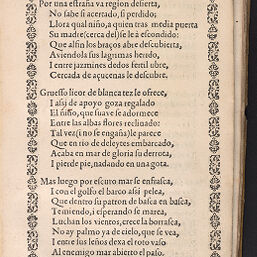 Por una estraña va region desierta,
No sabe si acertado, si perdido;
Llora qual niño, a quien tras media puerta
Su madre (cerca del) se le à escondido:
Que al fin los braços abre descubierta,
Aviendola sus lagrimas herido,
I entre jazmines dedos fertil ubre,
Cercada de açucenas le descubre.
Gruesso licor de blanca tez le ofrece,
I asij de apoyo goza regalado
El niño, que suave se adormece
Entre las albas flores reclinado:
Tal vez (i no se engaña) le parece
Que en rio de deleytes embarcado,
Acaba en mar de gloria su derrota,
I pierde pie, nadando en una gota.
Mas luego por escuro mar se enfrasca,
I con el golfo el barco assi pelea,
Que dentro su patron de basca en basca,
Temiendo, i esperando se marea,
Luchan los vientos, crece la borrasca,
No ay palmo ya de cielo, que se vea,
I entre sus leños dexa el roto vaso
Al enemigo mar abierto el paso.